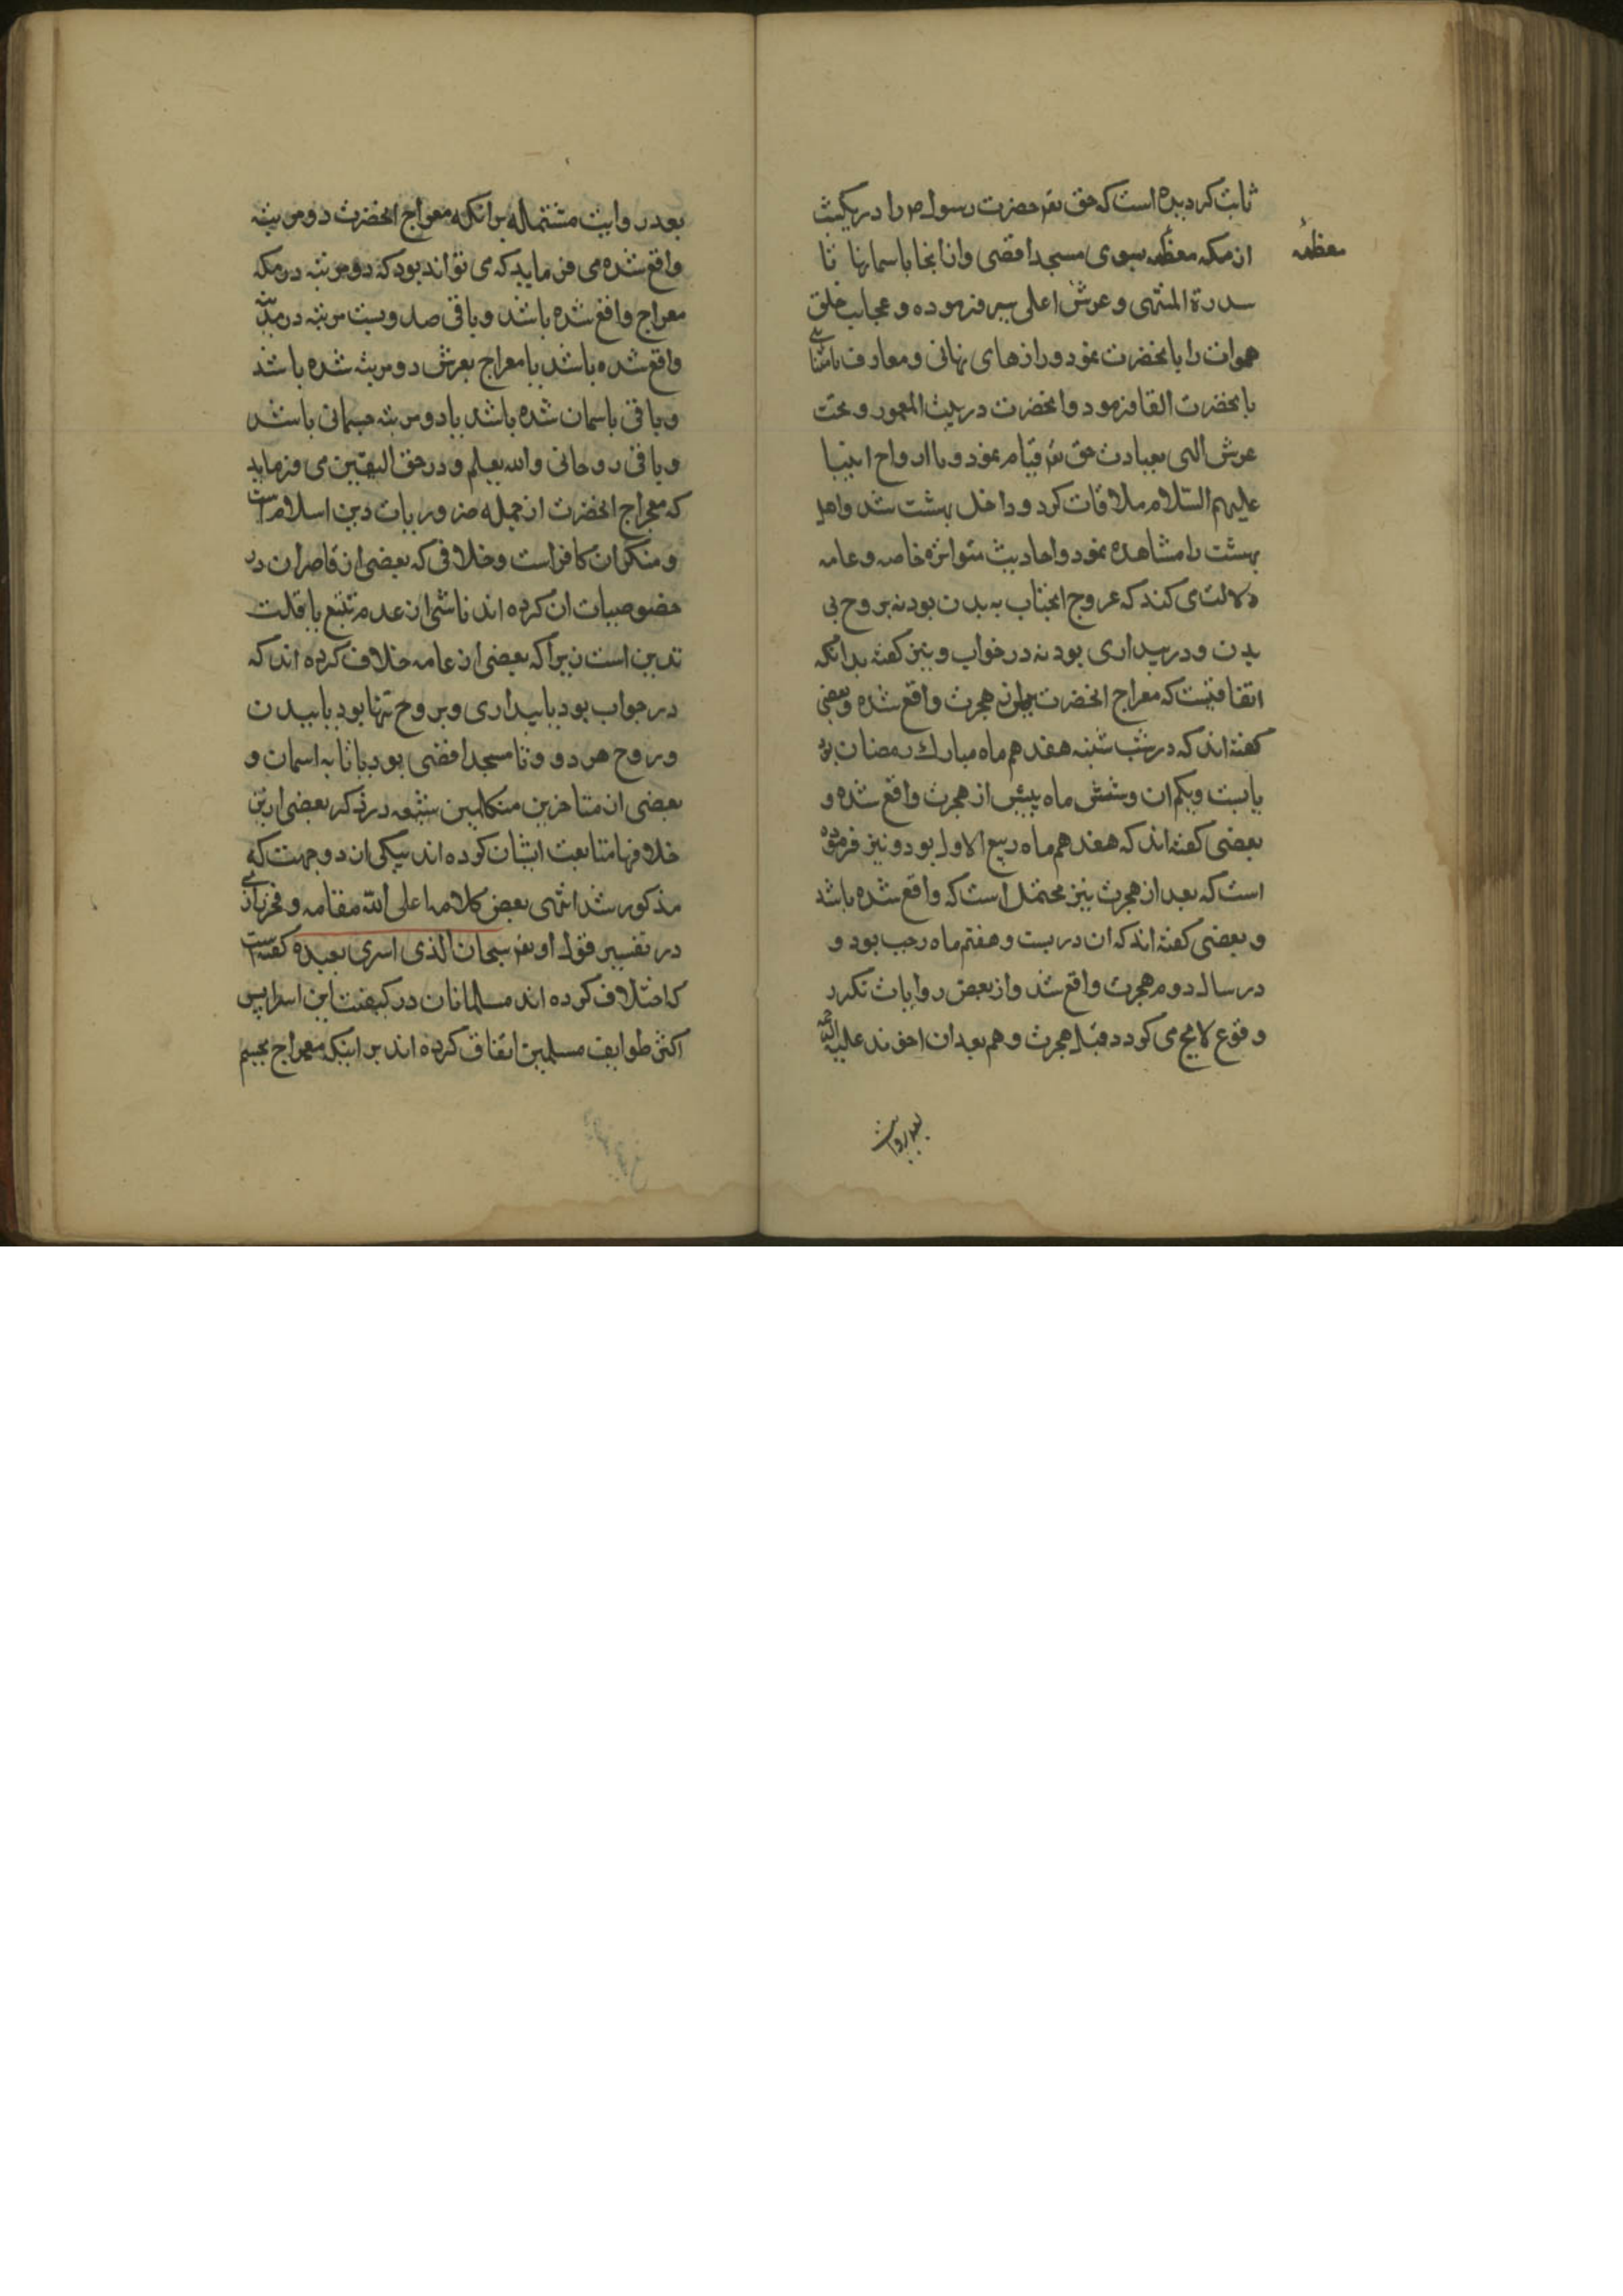 ثابت کردیده است که حق تعم حضرت رسول ص را در یکشب
از مکه معظمه بسوی مسجد اقصی و از انجا باسمانها تا
معظمه
سدرة المنتهی و عرش اعلی سیر فرموده و عجایب خلق
سموات را بانحضرت نمود و رازهای نهانی و معارف
بانحضرت القا فرمود و انحضرت در بیت المعمور و تحت
عرش الهی بعبادت حق تعم قیام نمود و با ارواح انبیا
علیهم السلام ملاقات کرد و داخل بهشت شد و اهل
بهشت را مشاهده نمود و احادیث متواتره خاصه و عامه
دلالت می کند که عروج انجناب به بدن بود نه بروح بی
بدن و در بیداری بود نه در خواب و نیز کفته بدانکه
اتفاقیست که معراج انحضرت پیش از هجرت واقع شده و بعضی
کفته اند که در شب شنبه هفدهم ماه مبارک رمضان بود
یا بیست و یکم ان و شش ماه پیش از هجرت واقع شده و
بعضی کفته اند که هفدهم ماه ربیع الاول بود و نیز فرموده
است که بعد از هجرت نیز محتمل است که واقع شده باشد
و بعضی کفته اند که ان در بیست و هفتم ماه رجب بود و
در سال دوم هجرت واقع شد و از بعض روایات تکرر
وقوع لایح می کردد قبل هجرت و هم بعد ان اخوند علیه
بعد روایت
بعد روایت مشتمله بر انکه معراج انحضرت دو مرتبه
واقع شده می فرماید که می تواند بود که دو مرتبه در مکه
معراج واقع شده باشد و باقی صد و بیست مرتبه در مدینه
واقع شده باشد یا معراج بعرش دو مرتبه شده باشد
و باقی باسمان شده باشد یا دو مرتبه جسمانی باشد
و باقی روحانی والله یعلم و در حق الیقین می فرماید
که معراج انحضرت از جمله ضروریات دین اسلام است
و منکر ان کافر است و خلافی که بعضی از قاصران در
خصوصیات ان کرده اند ناشی از عدم تتبع یا قلت
تدین است زیرا که بعضی از عامه خلاف کرده اند که
در خواب بود یا بیداری و بروح تنها بود یا ببدن
و روح هر دو و تا مسجد اقصی بود یا تا به اسمان و
بعضی از متاخرین متکلمین شیعه در ذکر بعضی از این
خلافها متابعت ایشان کرده اند بیکی از دو جهت که
مذکور شد انتهی بعض کلامه اعلی الله مقامه و فخر رازی
در تفسیر قول او تعم سبحان الذی اسری بعبده کفته است
که اختلاف کرده اند مسلمانان در کیفیت این اسرا پس
اکثر طوایف مسلمین اتفاق کرده اند بر اینکه معراج بجسم